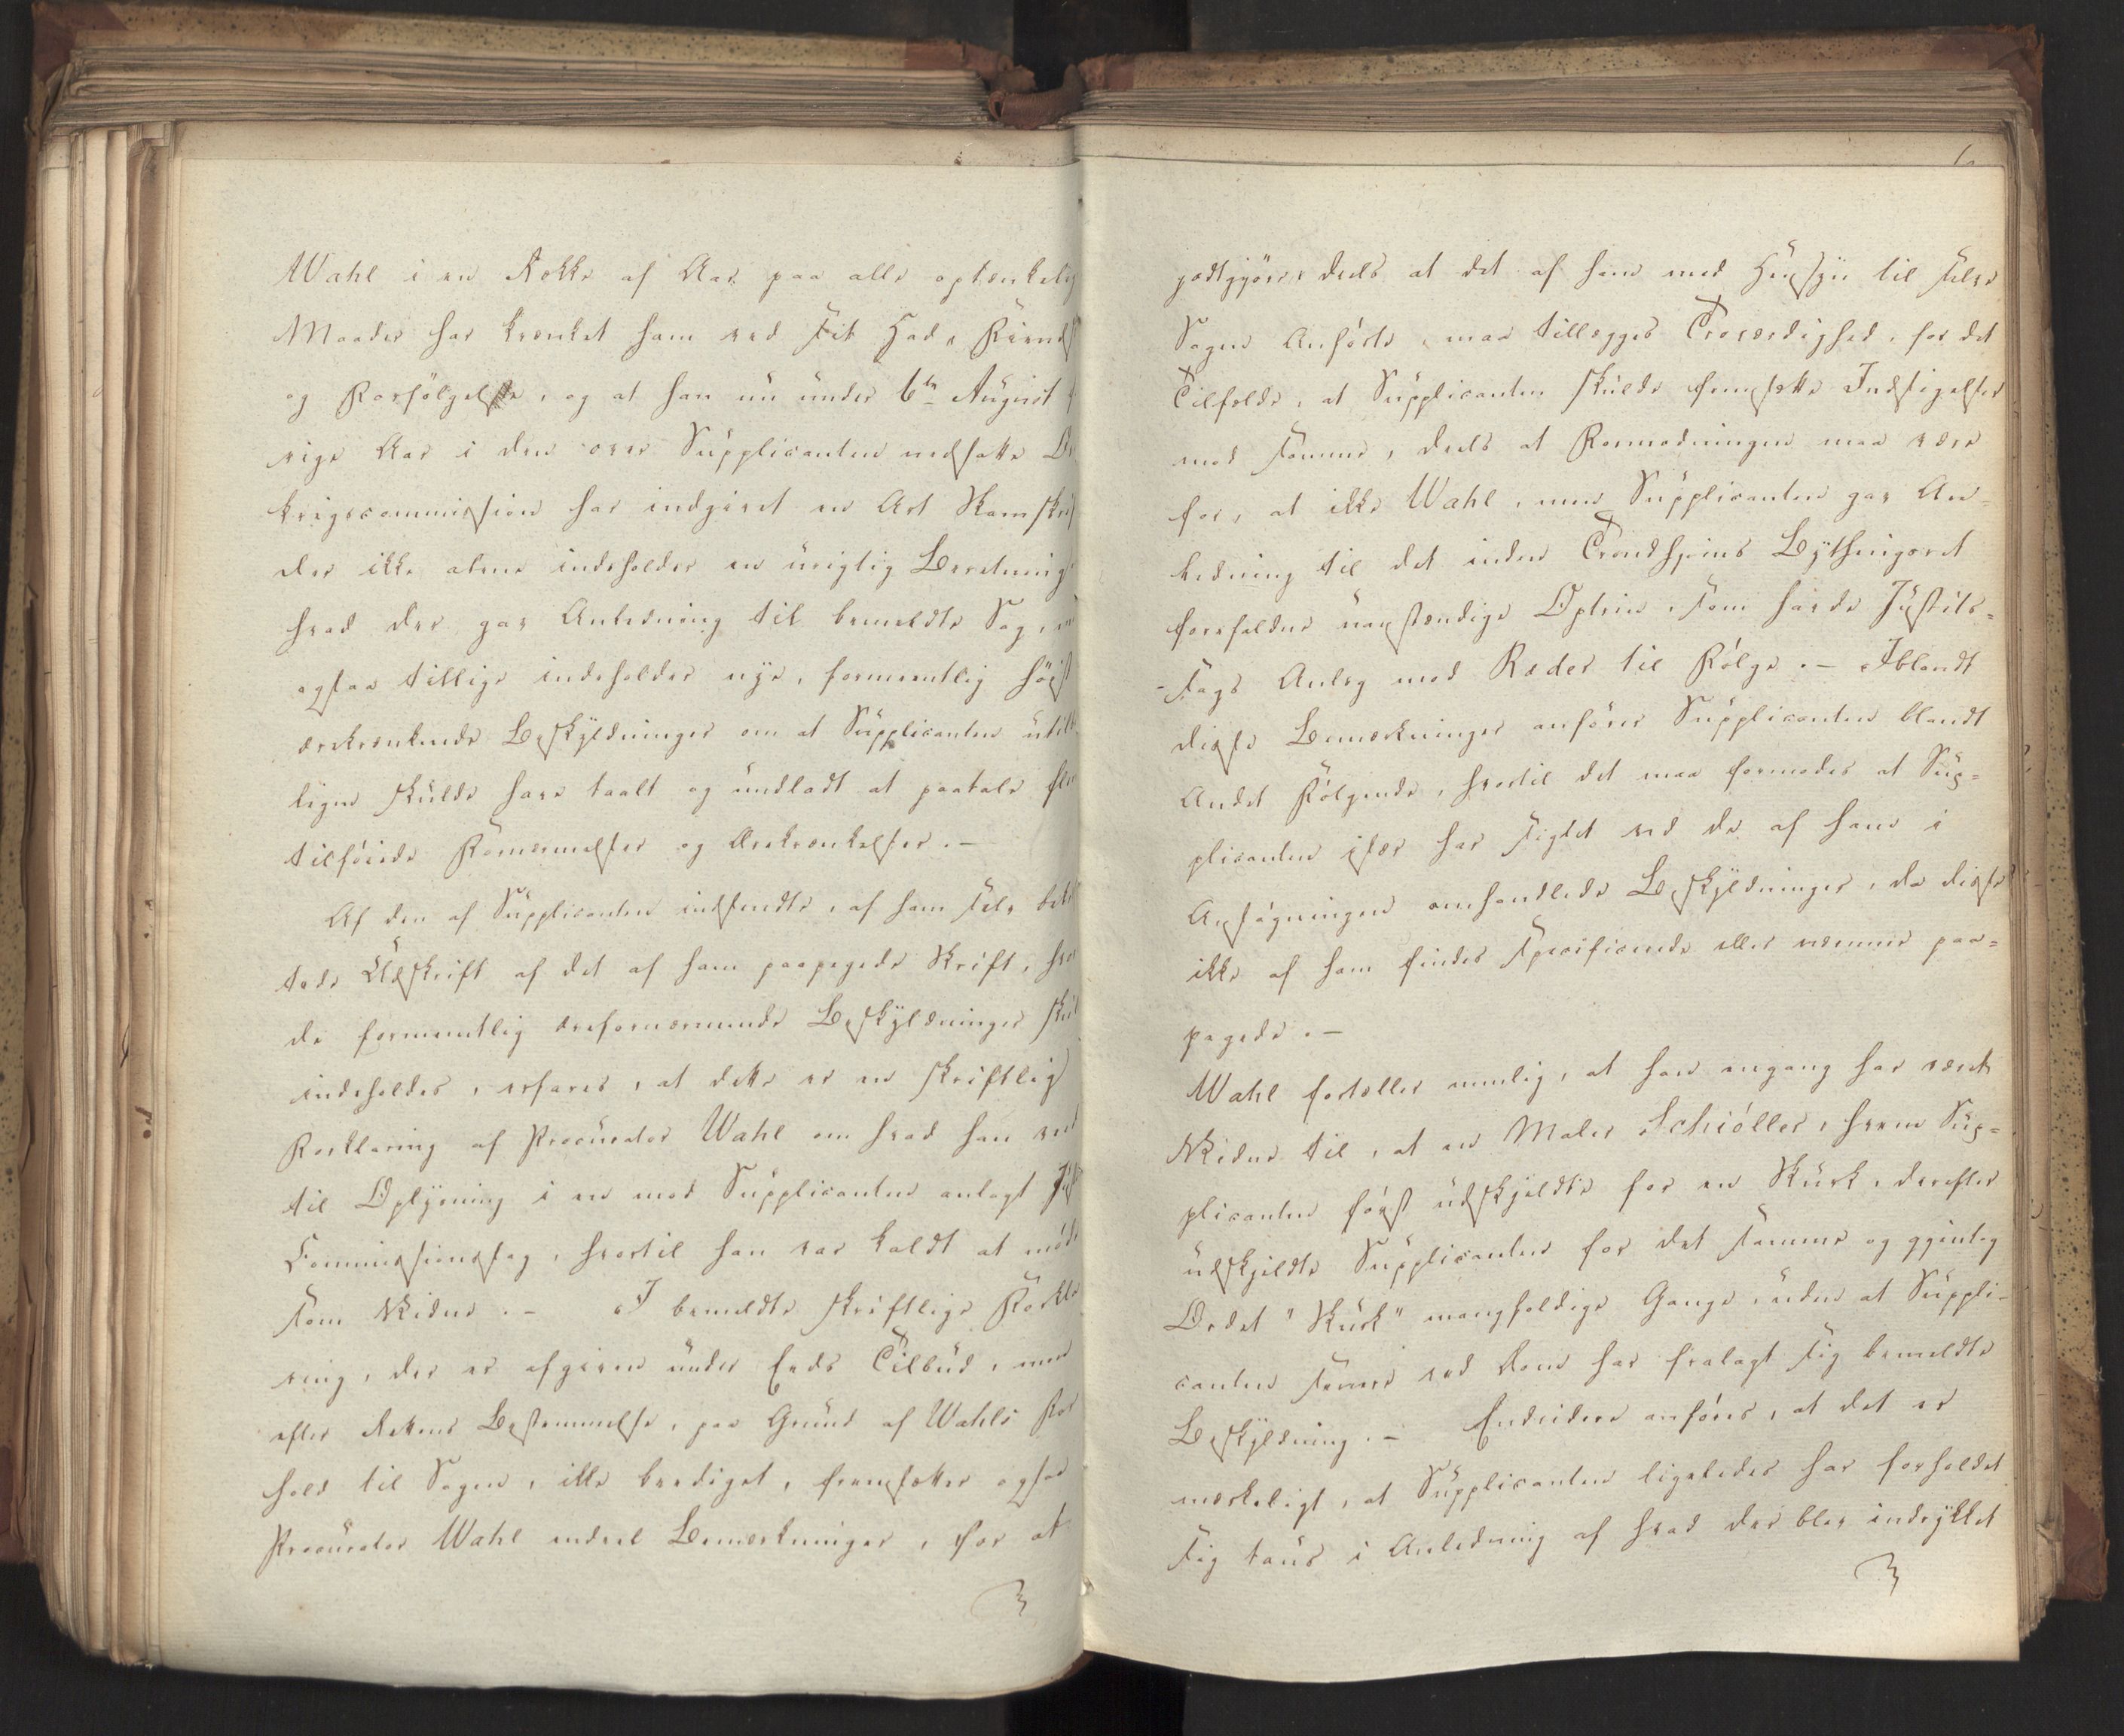 Wahl i en Række af Aar paa alle optænkelig
Maader har krænket ham ved sit Had, Fiends
og Forfølgelse, og at han nu under 6te August f
rige Aar i den over Supplicanten nedsatte Ov
krigscommission har indgivet en Art Skamskrif
der ikke alene indeholder en urigtig Beretning
hvad der gav Anledning til bemeldte Sag, m
ogsaa tillige indeholder nye, formeentlig høist
ærekrænkende Beskyldninger om at Supplicanten util
ligen skulde have taalt og undladt at paatale fle
tilføiede Fornærmelser og Ærekrænkelser. -
Af den af Supplicanten indsendte, af ham selv bekr
tede Udskrift af det af ham paapegede Skrift, hvor
de formeentlig ærefornærmende Beskyldninger skul
indeholdes, erfares, at dette er en skriftlig
Forklaring af Procurator Wahl om hvad han ved
til Oplysning i en mod Supplicanten anlagt Just
Commissionssag, hvortil han var kaldt at møde
som Vidne. - I bemeldte skriftlige Forkla
ring, der er afgiven under Eeds Tilbud, men
efter Rettens Bestemmelse, paa Grund af Wahls For
hold til Sagen, ikke beediget, fremsætter ogsaa
Procurator Wahl endeel Bemærkninger, for at
6
godtgjøre deels at det af ham med Hensyn til selve
Sagen Anførte, maa tillægges Troværdighed, for det
Tilfælde, at Supplicanten skulde fremsætte Indsigelser
mod samme, deels at Formodningen maa være
for, at ikke Wahl, men Supplicanten gav An=
ledning til det inden Trondhjems Bythingsret
forefaldne uanstændige Optrin, som havde Justits=
=sags Anlæg mod Beder til Følge. - Iblandt
disse Bemærkninger anfører Supplicanten blandt
Andet Følgende, hvortil det maa formodes at Sup=
plicanten især har sigtet ved de af ham i
Ansøgningen omhandlede Beskyldninger, da disse
ikke af ham findes specificerede eller nærmere paa=
pegede. -
Wahl fortæller nemlig, at han engang har været
Vidne til, at en Maler Schiøller, hvem Sup=
plicanten først udskjeldte for en Skurk, derefter
udskjeldte Supplicanten for det samme og gjentog
Ordet "Skurk" mangfoldige Gange, uden at Suppli=
canten senere ved Dom har fralagt sig bemeldte
Beskyldning. - Endvidere anføres, at det er
mærkeligt, at Supplicanten ligeledes har forholdet
sig taus i Anledning af hvad der blev indrykket